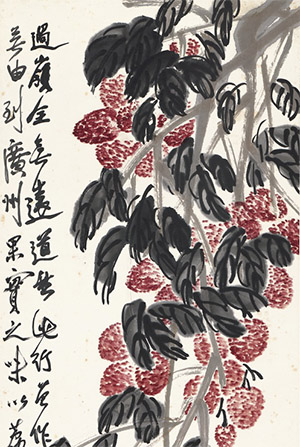 過嶺全無遠道此行作
無由到廣州果實之味以荔